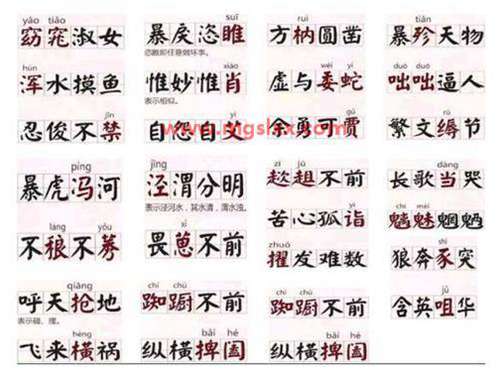 yǎo tiǎo
窈窕淑女
suī
暴戾恣睢
ruì
方枘圆凿
tiǎn
暴殄天物
hún
浑水摸鱼
xiào
惟妙惟肖
表示相似。
wēi yí
虚与委蛇
duō duō
咄咄逼人
jīn
忍俊不禁
自怨自艾
gǔ
余勇可贾
rù
繁文缛节
píng
暴虎冯河
jīng
泾渭分明
表示泾河水，其水清，渭水浊。
zī jū
趑趄不前
dàng
长歌当哭
láng yǒu
不稂不莠
xǐ
畏葸不前
yì
苦心孤诣
魑魅魍魉
zhuó
擢发难数
狼奔豕突
qiāng
呼天抢地
chí chú
踟蹰不前
chí chú
踟蹰不前
jǔ
含英咀华
hèng
飞来横祸
bǎi hé
纵横捭阖
bǎi hé
纵横捭阖